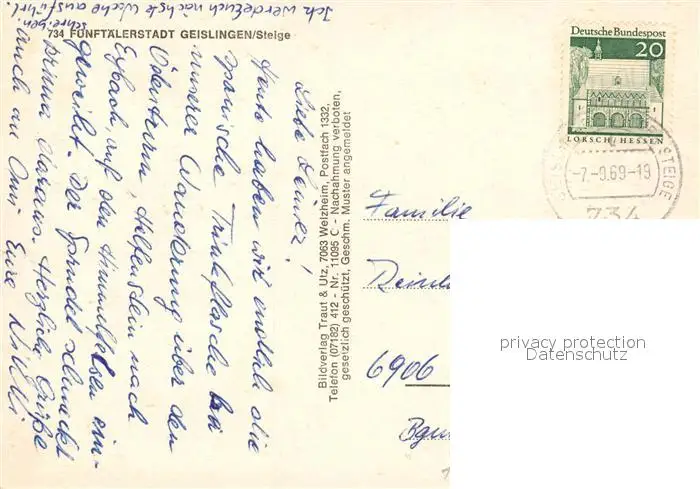 734 FÜNFTÄLERSTADT GEISLINGEN/Steige
Liebe
Heute haben wir endlich die
spanische Trinkflasche bei
unserer Wanderung über den
Ödenturm, Helfenstein nach
Eybach, auf den Himmelfelsen ein-
geweiht. Der Sprudel schmeckt
prima daraus. Herzliche Grüße
auch an Omi Eure
Ich werde Euch nächste Woche ausführl.
schreiben.
Bildverlag Traut & Utz, 7063 Welzheim, Postfach 1332,
Telefon (07182) 412 - Nr. 11095 C - Nachahmung verboten,
gesetzlich geschützt, Geschm. Muster angemeldet
Deutsche Bundespost
20
LORSCH/HESSEN
STEIGE
-7.-9.69-19
734
Familie
6906
privacy protection
Datenschutz